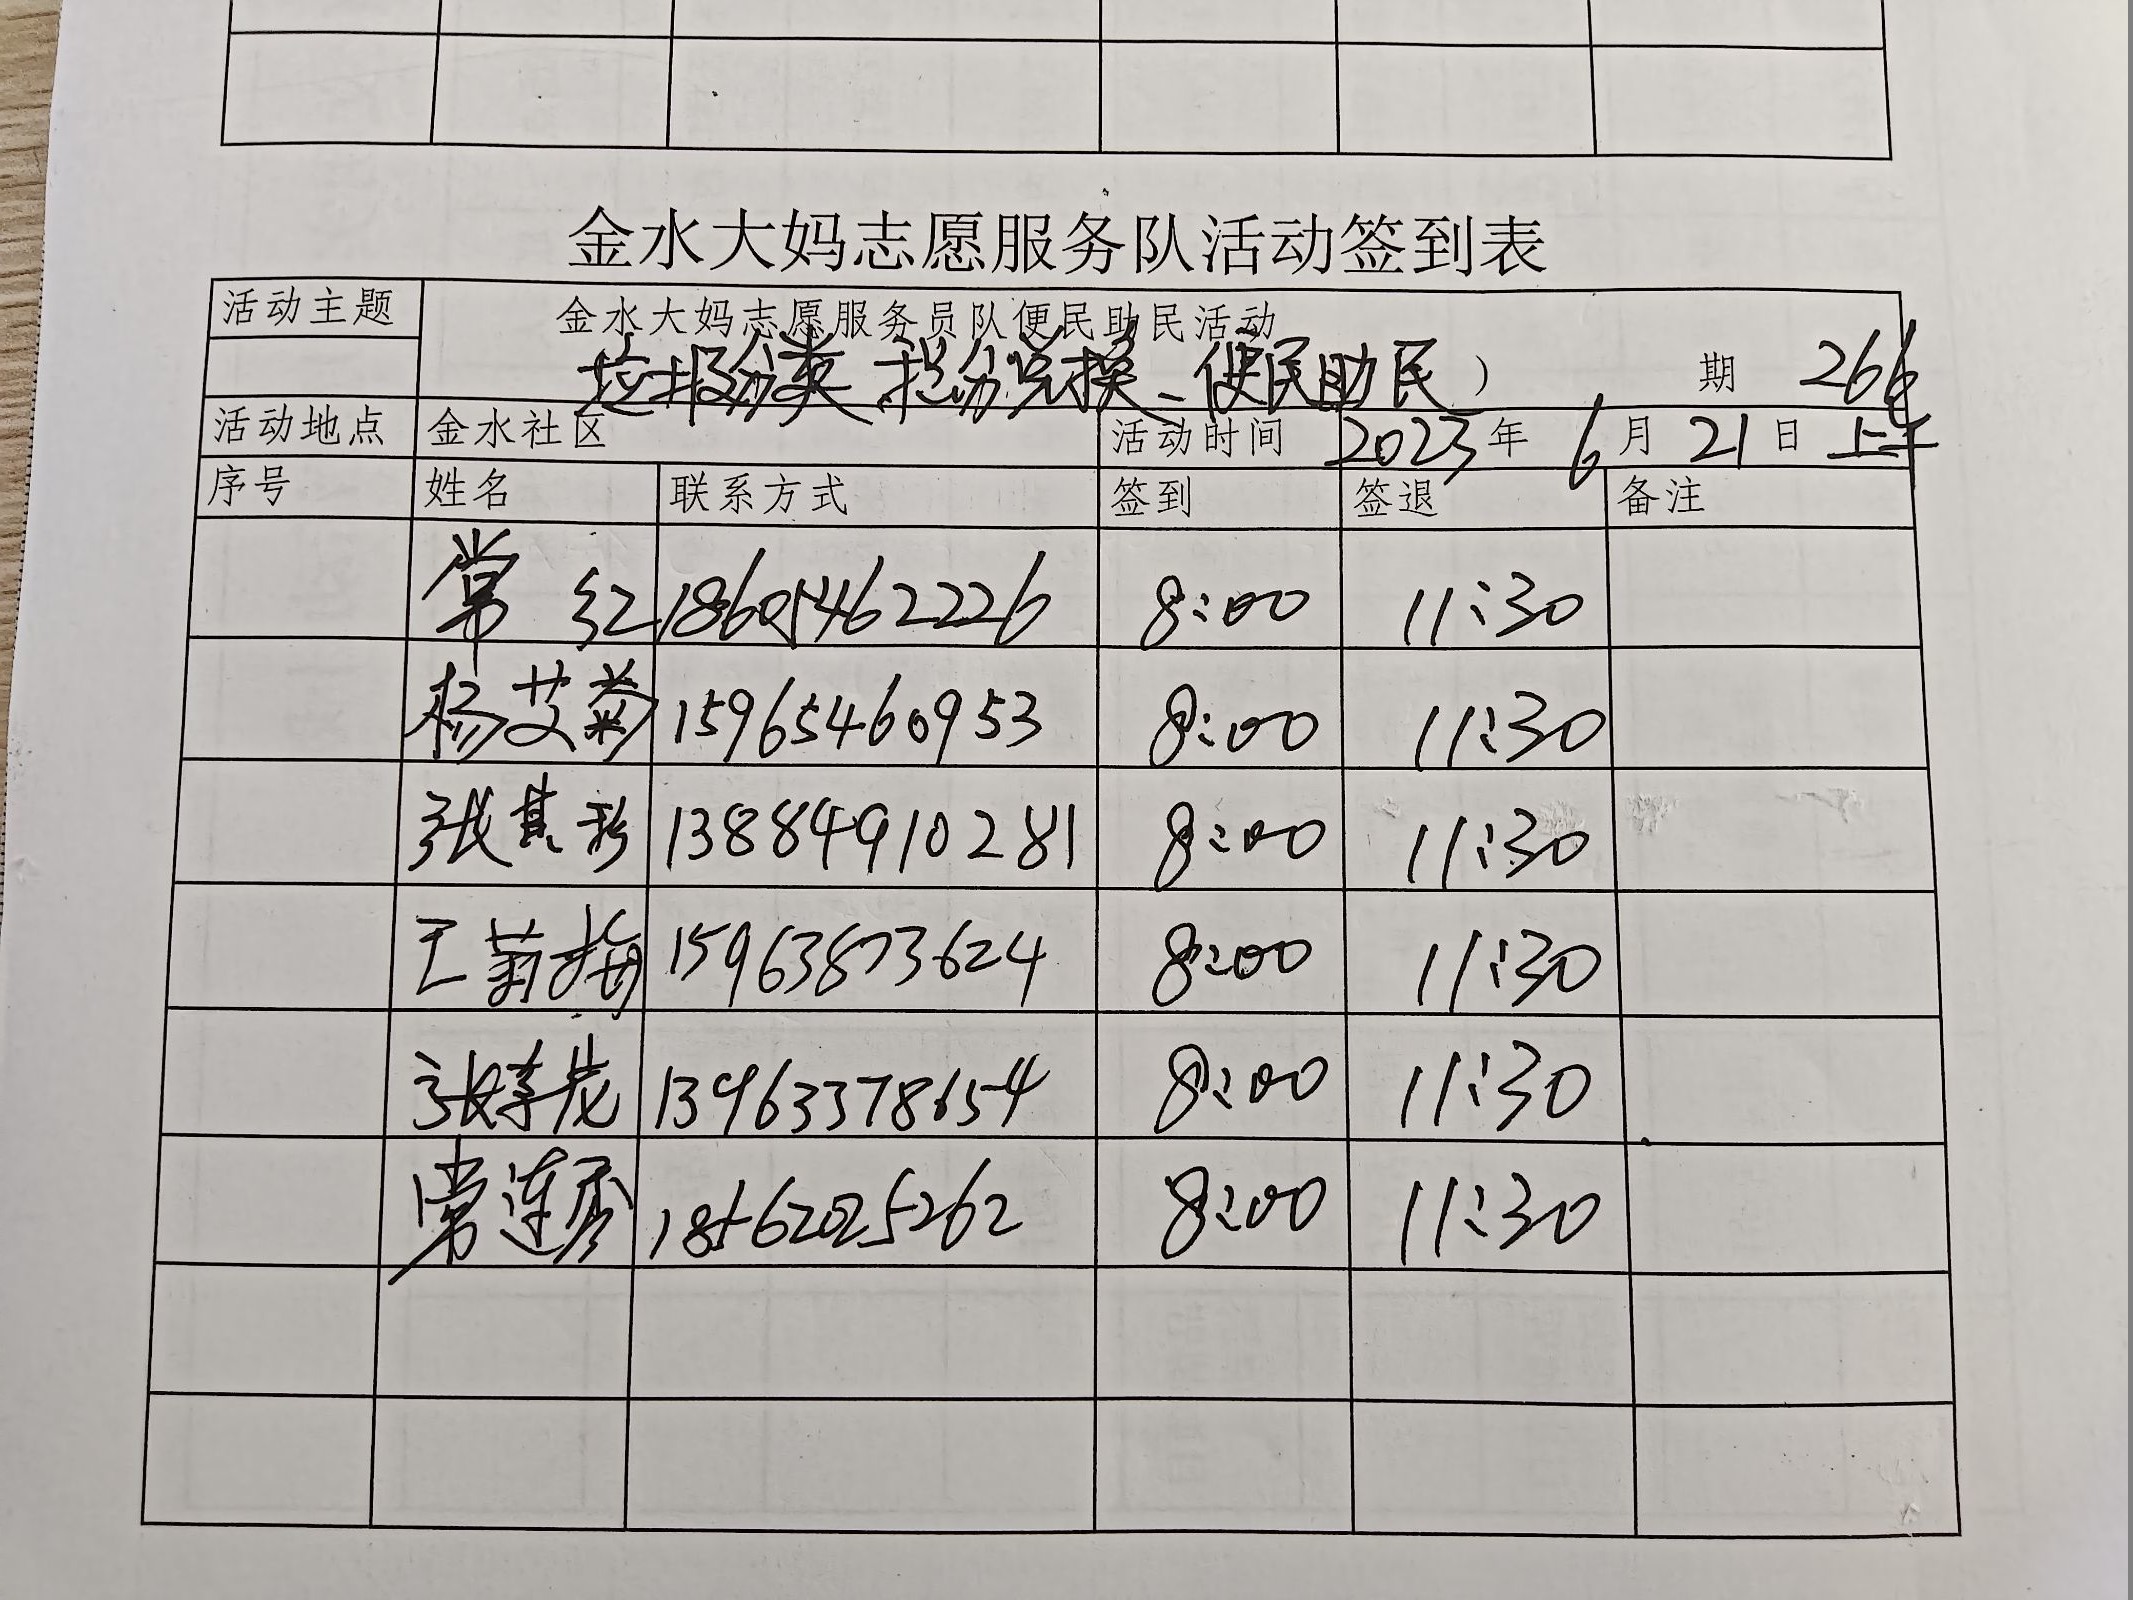 金水大妈志愿服务队活动签到表
活动主题 金水大妈志愿服务员队便民助民活动
垃圾分类、积分兑换、便民助民） 期 266
活动地点 金水社区 活动时间 2023年 6月 21日 上午
序号 姓名 联系方式 签到 签退 备注
常红 18605462226 8:00 11:30
杨艾菊 15965460953 8:00 11:30
张其珍 13884910281 8:00 11:30
王菊梅 15963873624 8:00 11:30
张 13963378654 8:00 11:30
常连秀 18562025262 8:00 11:30